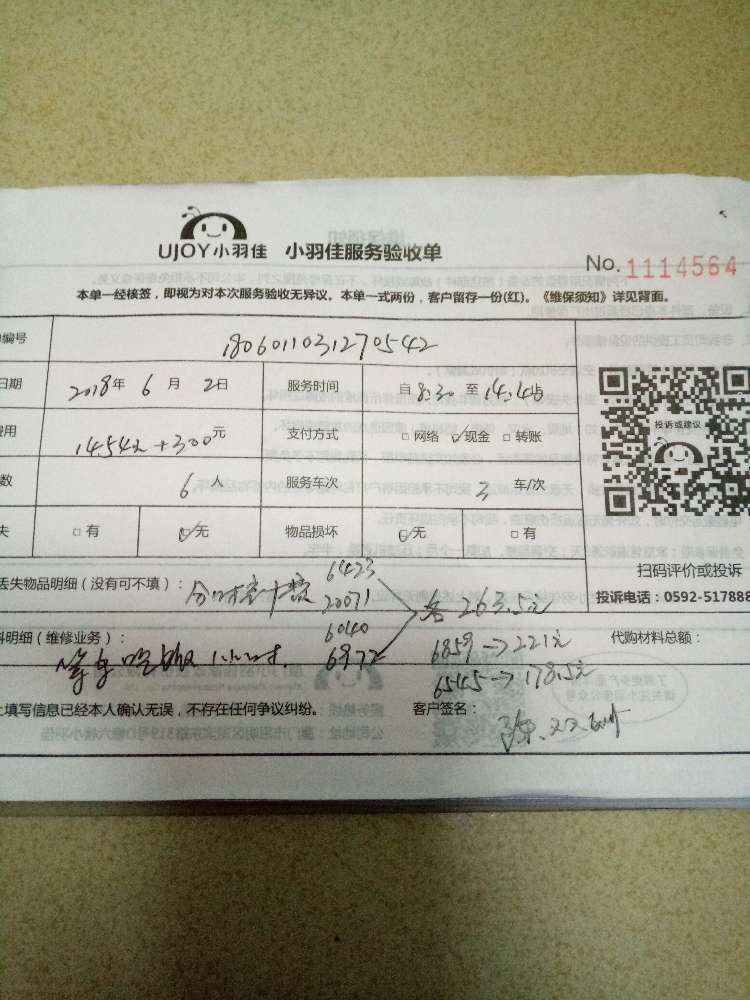 UJOY小羽佳 小羽佳服务验收单
No. 1114564
本单一经核签，即视为对本次服务验收无异议。本单一式两份，客户留存一份(红)。《维保须知》详见背面。
编号 1806011031270542
日期 2018年 6月 2日 服务时间 自8:30至14:45
用 1454元+300元 支付方式 □网络 ☑现金 □转账
数 6人 服务车次 3 车/次
失 □有 ☑无 物品损坏 ☑无 □有
投诉或建议
扫码评价或投诉
投诉电话：0592-517888
丢失物品明细（没有可不填）：
6423
20071
6040
6972
各263.5元
料明细（维修业务）：
代购材料总额：
6859→221元
6545→178.5元
上填写信息已经本人确认无误，不存在任何争议纠纷。
客户签名：